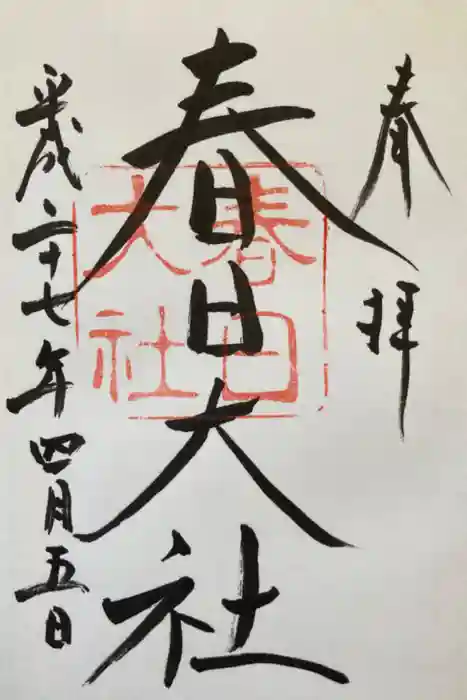 奉拝
春日大社
春日
大社
平成二十七年四月五日